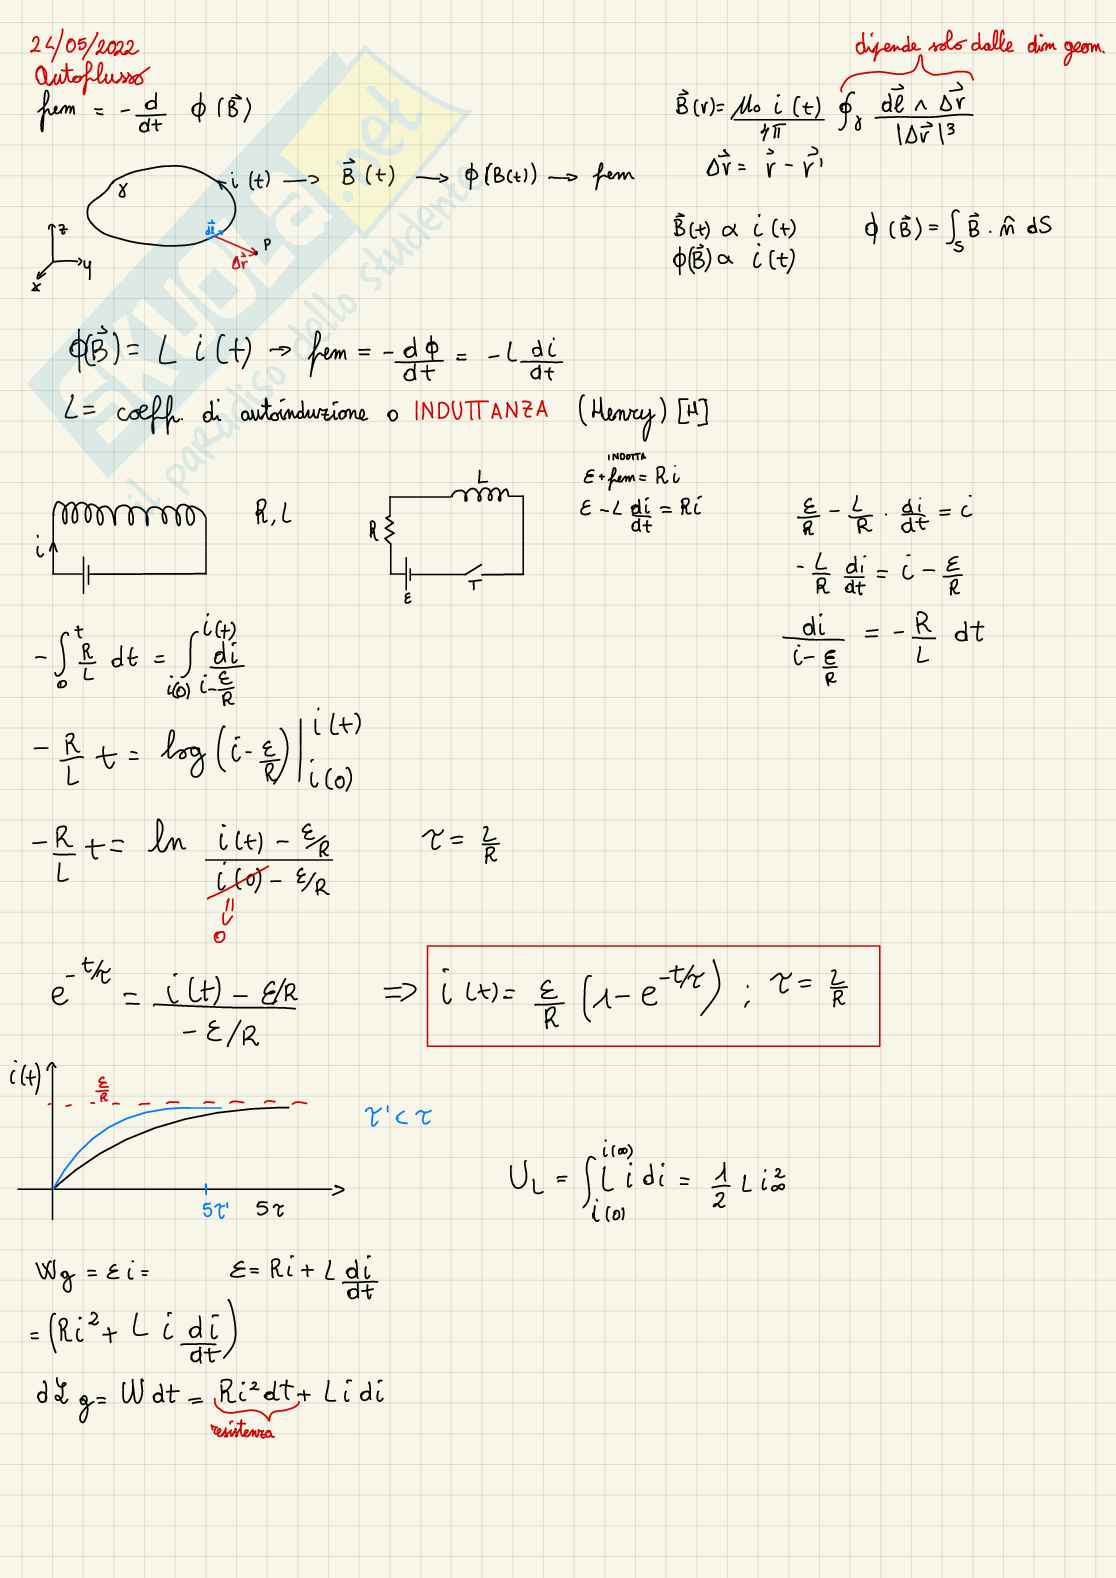 24/05/2022
Autoflusso
fem = - d/dt ϕ(B⃗)
dipende solo dalle dim geom.
B⃗(r) = μ₀ i(t)/4π ∮γ dl⃗ ∧ Δr⃗ / |Δr⃗|³
Δr⃗ = r⃗ - r⃗'
γ i(t) → B⃗(t) → ϕ(B(t)) → fem
dl⃗ P Δr⃗
z y x
B⃗(t) ∝ i(t)
ϕ(B⃗) ∝ i(t)
ϕ(B⃗) = ∫S B⃗ · n̂ dS
ϕ(B⃗) = L i(t) → fem = - dϕ/dt = - L di/dt
L = coeff. di autoinduzione o INDUTTANZA (Henry) [H]
i R, L
L R ε T
INDOTTA
ε + fem = Ri
ε - L di/dt = Ri
ε/R - L/R · di/dt = i
- L/R di/dt = i - ε/R
di/(i - ε/R) = - R/L dt
- ∫₀ᵗ R/L dt = ∫i(0)^i(t) di/(i - ε/R)
- R/L t = log (i - ε/R) |i(0)^i(t)
- R/L t = ln (i(t) - ε/R)/(i(0) - ε/R) τ = L/R
= 0
e^(-t/τ) = (i(t) - ε/R)/(- ε/R) ⇒ i(t) = ε/R (1 - e^(-t/τ)) ; τ = L/R
i(t) ε/R
τ' < τ
5τ' 5τ
U_L = ∫i(0)^i(∞) L i di = 1/2 L i²∞
Wg = ε i = ε = Ri + L di/dt
= (Ri² + L i di/dt)
dℒg = W dt = Ri² dt + L i di
resistenza
SKUOLA.net
il paradiso dello studente